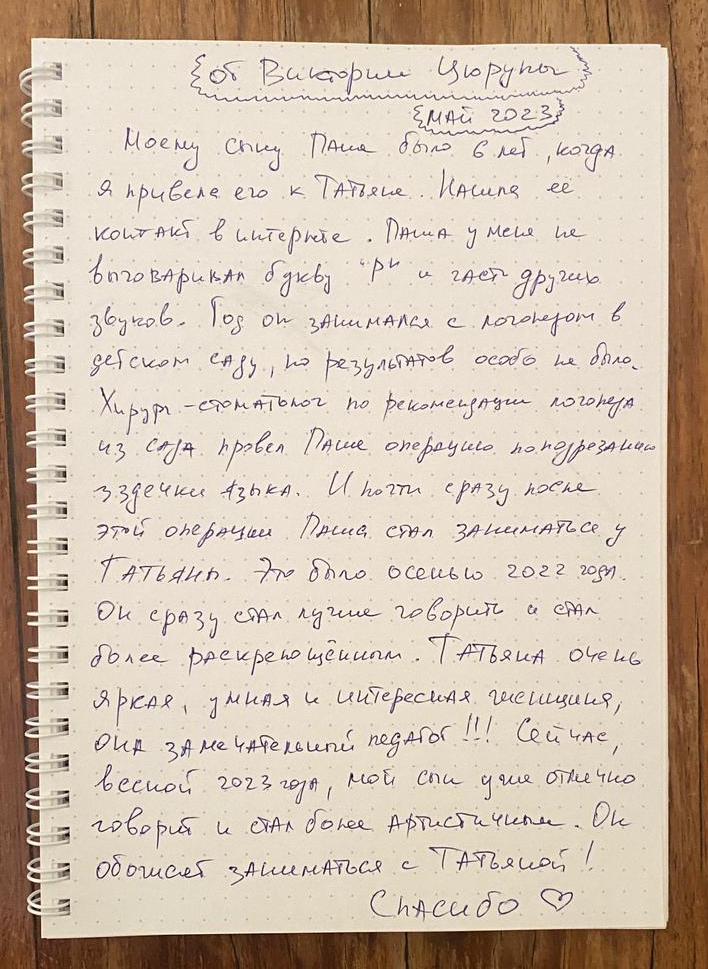 от Виктории Цюрупы
май 2023
Моему сыну Паше было 6 лет, когда
я привела его к Татьяне. Нашла её
контакт в интернете. Паша у меня не
выговаривал букву "р" и часть других
звуков. Год он занимался с логопедом в
детском саду, но результатов особо не было.
Хирург-стоматолог по рекомендации логопеда
из сада провёл Паше операцию по подрезанию
уздечки языка. И почти сразу после
этой операции Паша стал заниматься у
Татьяны. Это было осенью 2022 года.
Он сразу стал лучше говорить и стал
более раскрепощённым. Татьяна очень
яркая, умная и интересная женщина,
она замечательный педагог!!! Сейчас,
весной 2023 года, мой сын уже отлично
говорит и стал более артистичным. Он
обожает заниматься с Татьяной!
Спасибо ♡